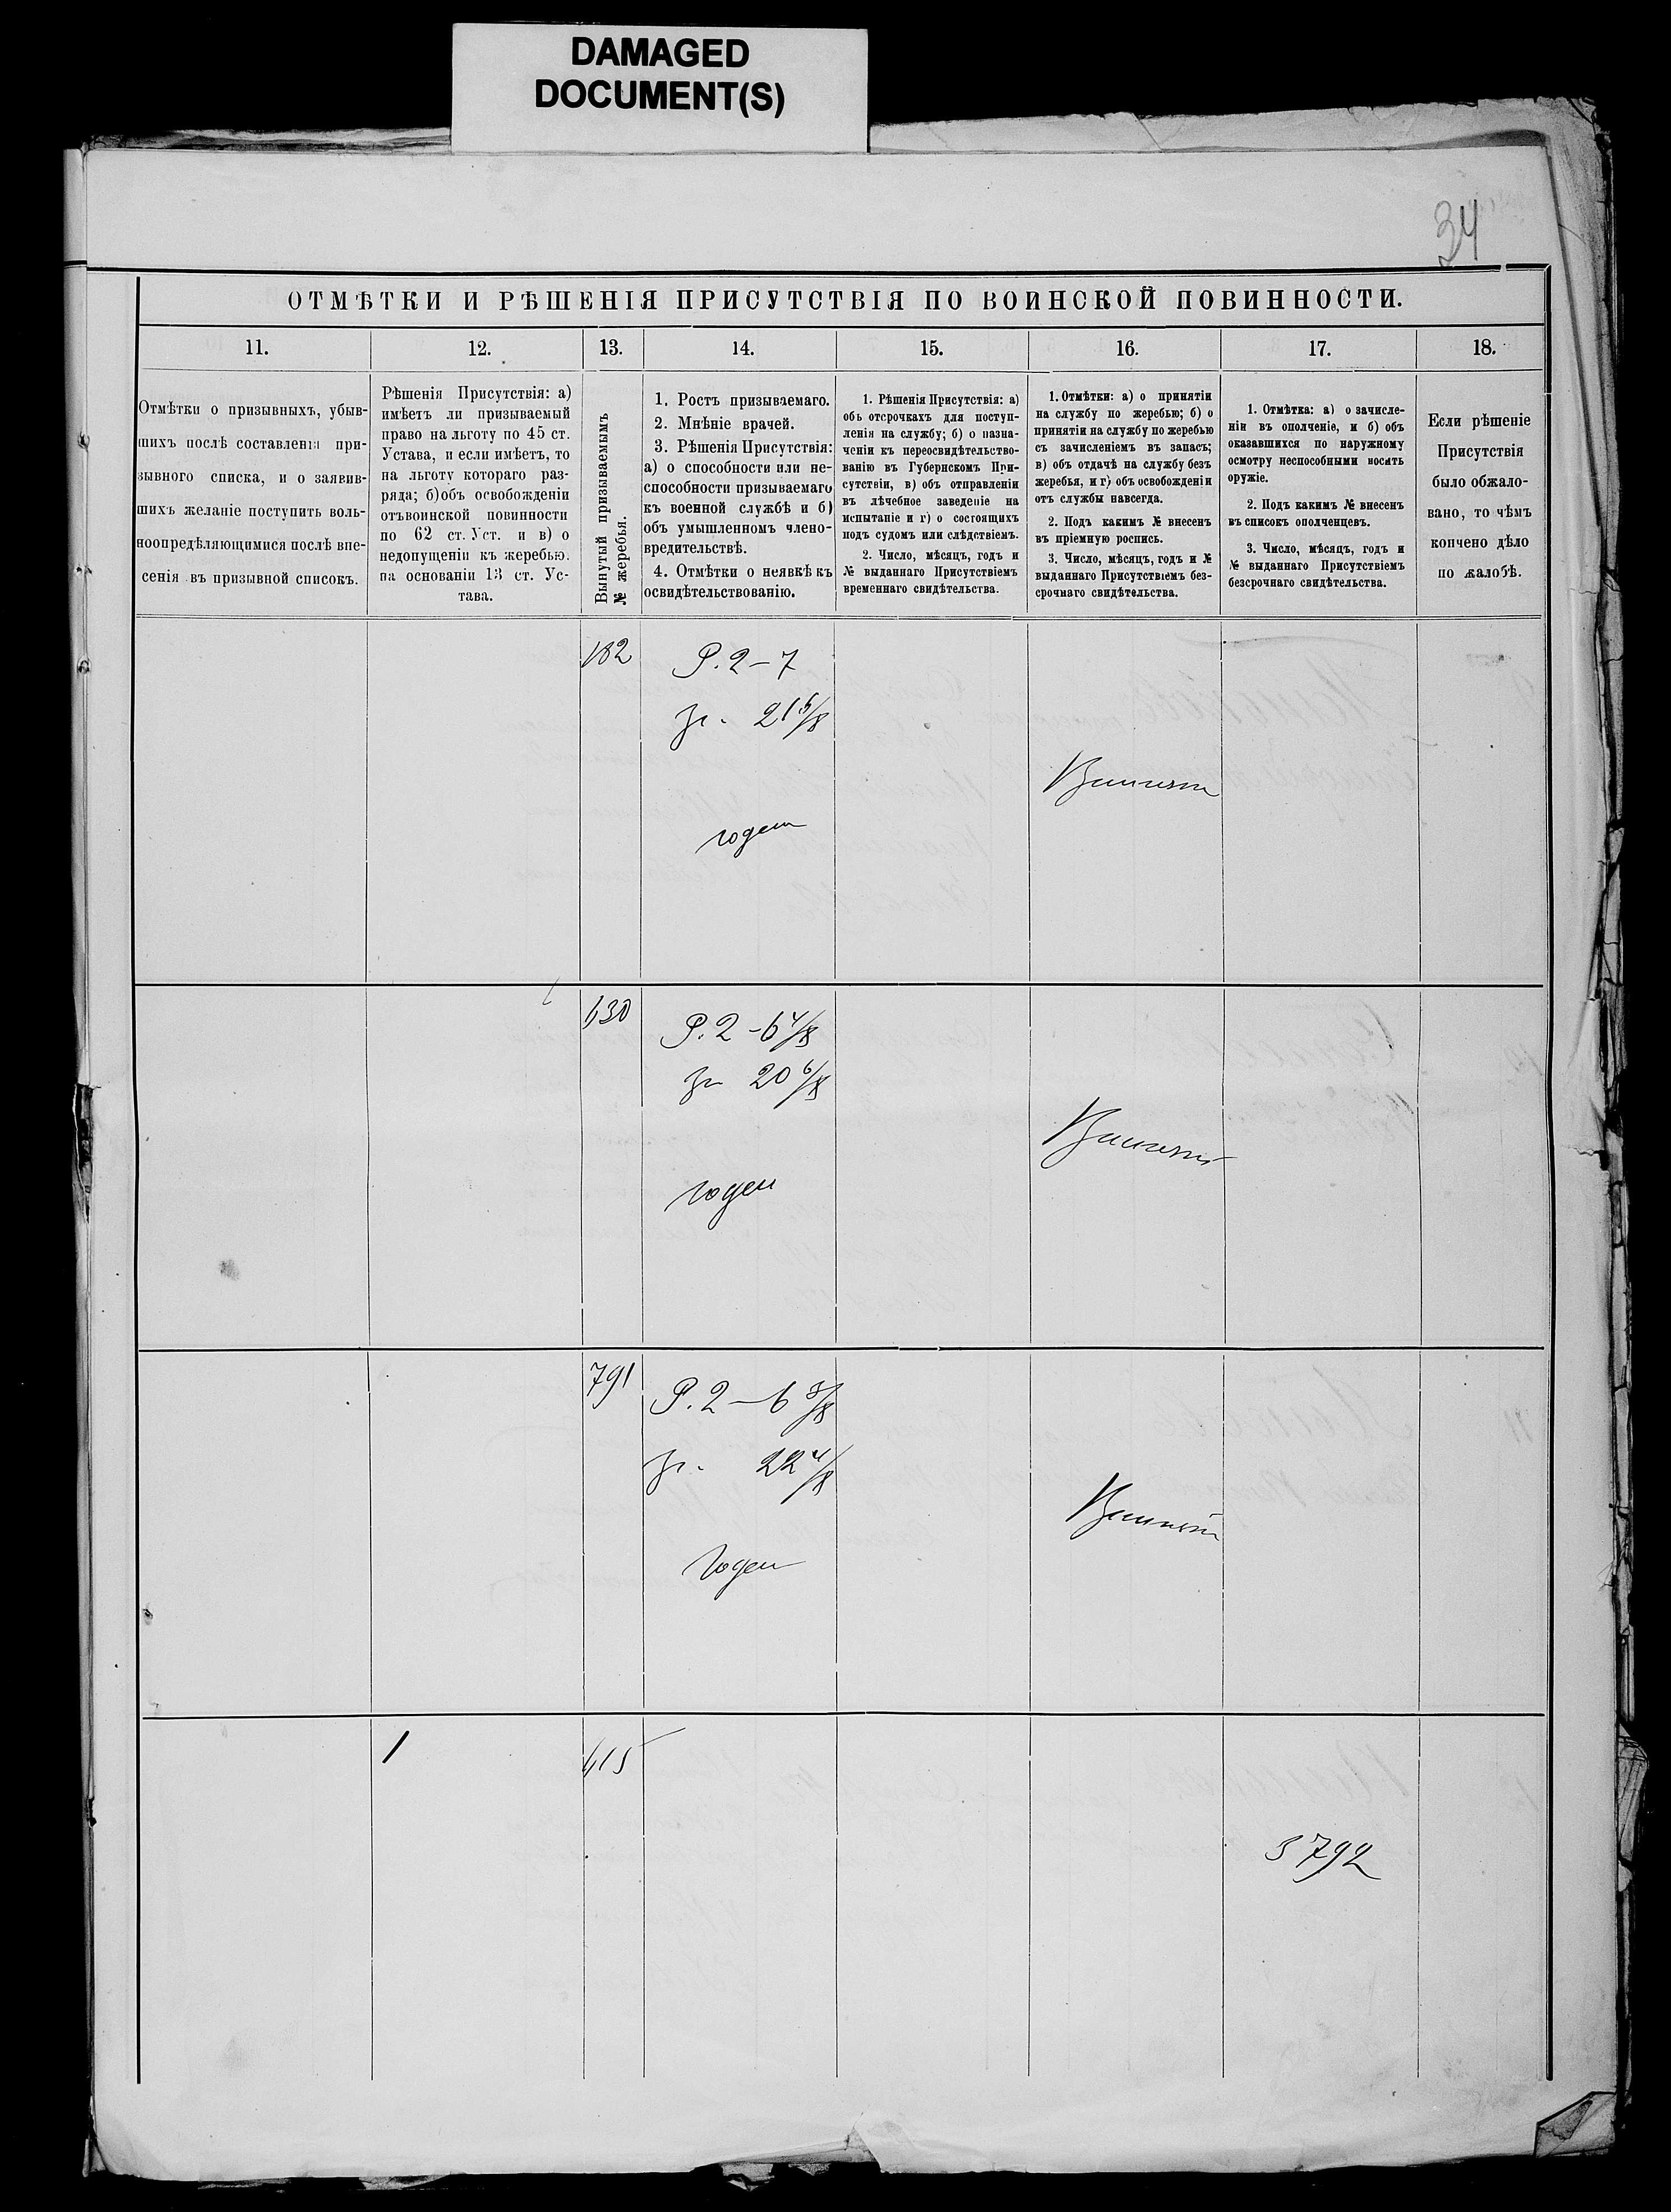 DAMAGED
DOCUMENT(S)
34
ОТМѢТКИ И РѢШЕНІЯ ПРИСУТСТВІЯ ПО ВОИНСКОЙ ПОВИННОСТИ.
11.
12.
13.
14.
15.
16.
17.
18.
Отмѣтки о призывныхъ, убыв-
шихъ послѣ составленія при-
зывного списка, и о заявив-
шихъ желаніе поступить воль-
ноопредѣляющимися послѣ вне-
сенія въ призывной списокъ.
Рѣшенія Присутствія: а)
имѣетъ ли призываемый
право на льготу по 45 ст.
Устава, и если имѣетъ, то
на льготу котораго раз-
ряда; б) объ освобожденіи
отъ воинской повинности
по 62 ст. Уст. и в) о
недопущеніи къ жеребью.
на основаніи 13 ст. Ус-
тава.
Вынутый призываемымъ
№ жеребья.
1. Ростъ призываемаго.
2. Мнѣніе врачей.
3. Рѣшенія Присутствія:
а) о способности или не-
способности призываемаго
къ военной службѣ и б)
объ умышленномъ члено-
вредительствѣ.
4. Отмѣтки о неявкѣ къ
освидѣтельствованію.
1. Рѣшенія Присутствія: а)
объ отсрочкахъ для поступ-
ленія на службу; б) о назна-
ченіи къ переосвидѣтельство-
ванію въ Губернскомъ При-
сутствіи, в) объ отправленіи
въ лѣчебное заведеніе на
испытаніе и г) о состоящихъ
подъ судомъ или слѣдствіемъ.
2. Число, мѣсяцъ, годъ и
№ выданнаго Присутствіемъ
временнаго свидѣтельства.
1. Отмѣтки: а) о принятіи
на службу по жеребью; б) о
принятіи на службу по жеребью
съ зачисленіемъ въ запасъ;
в) объ отдачѣ на службу безъ
жеребья, и г) объ освобожденіи
отъ службы навсегда.
2. Подъ какимъ № внесенъ
въ пріемную роспись.
3. Число, мѣсяцъ, годъ и №
выданнаго Присутствіемъ без-
срочнаго свидѣтельства.
1. Отмѣтка: а) о зачисле-
ніи въ ополченіе, и б) объ
оказавшихся по наружному
осмотру неспособными носить
оружіе.
2. Подъ какимъ № внесенъ
въ списокъ ополченцевъ.
3. Число, мѣсяцъ, годъ и
№ выданнаго Присутствіемъ
безсрочнаго свидѣтельства.
Если рѣшеніе
Присутствія
было обжало-
вано, то чѣмъ
кончено дѣло
по жалобѣ.
182
Р. 2-7
гр. 21 5/8
годен
630
Р. 2-6 4/8
гр 20 6/8
годен
791
Р. 2-6 3/8
гр. 22 4/8
Годен
1
615
3792